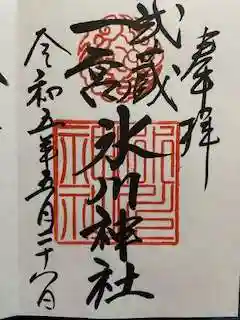 奉拝
武蔵
一宮
氷川神社
令和五年五月二十八日